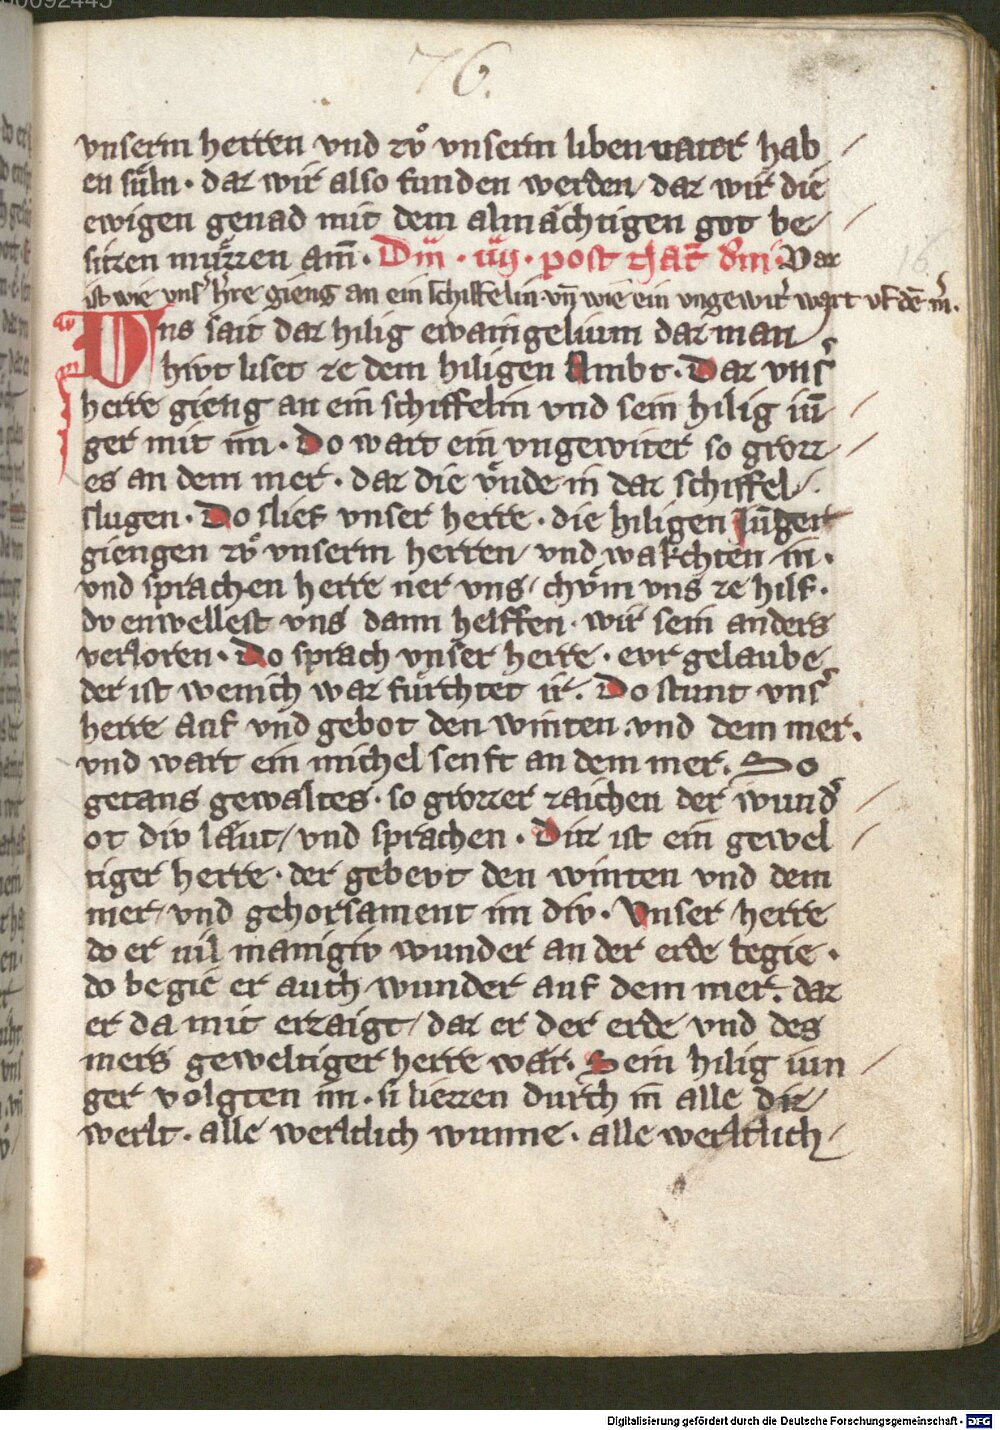 76.
vnserm herren vnd zvͦ vnserm liben vater hab
en sůln · daz wir also funden werden daz wir die
ewigen genad mit dem almächtigen got be-
sitzen můzzen am̄ · Dm̄ · iiij · post Dar
ist wie vnsʼ hʼre gieng an ein schiffelin vn̄ wie ein vngewitʼ wart vf dē mʼ.
Vns sait daz hilig ewangelium daz man
hivt liset ze dem hiligen Ambt · Daz vnsʼ
herre gieng an ein schiffelin vnd sein hilig iū
ger mit im · Do wart ein vngewiter so grozz
es an dem mer · daz die vͤnde in daz schiffel
slugen · Do slief vnser herre · die hiligen Jūger
giengen zvͦ vnserm herren vnd wakchten in ·
vnd sprachen herre ner vns chvͦm vns ze hilf ·
dv enwellest vns dann helffen · wir sein anders
verloren · Do sprach vnser herre · evr gelaube
der ist wenich war fürchtet ir · Do stunt vnsʼ
herre auf vnd gebot den winten · vnd dem mer ·
vnd wart ein michel senft an dem mer · So
getans gewaltes · so grozzer zaichen der wundʼ
ot div läut vnd sprachen · Ditz ist ein gewel
tiger herre · der gebevt den winten vnd dem
mer vnd gehorsament im div · Vnser herre
do er vil manigiv wunder an der erde begie ·
do begie er auch wunder auf dem mer · daz
er da mit erzaigt daz er der erde vnd des
mers geweltiger herre wär · Sein hilig iun
ger volgten im · si liezzen durch in alle
werlt · alle werltlich wunne · alle werltlich
Digitalisierung gefördert durch die Deutsche Forschungsgemeinschaft · DFG